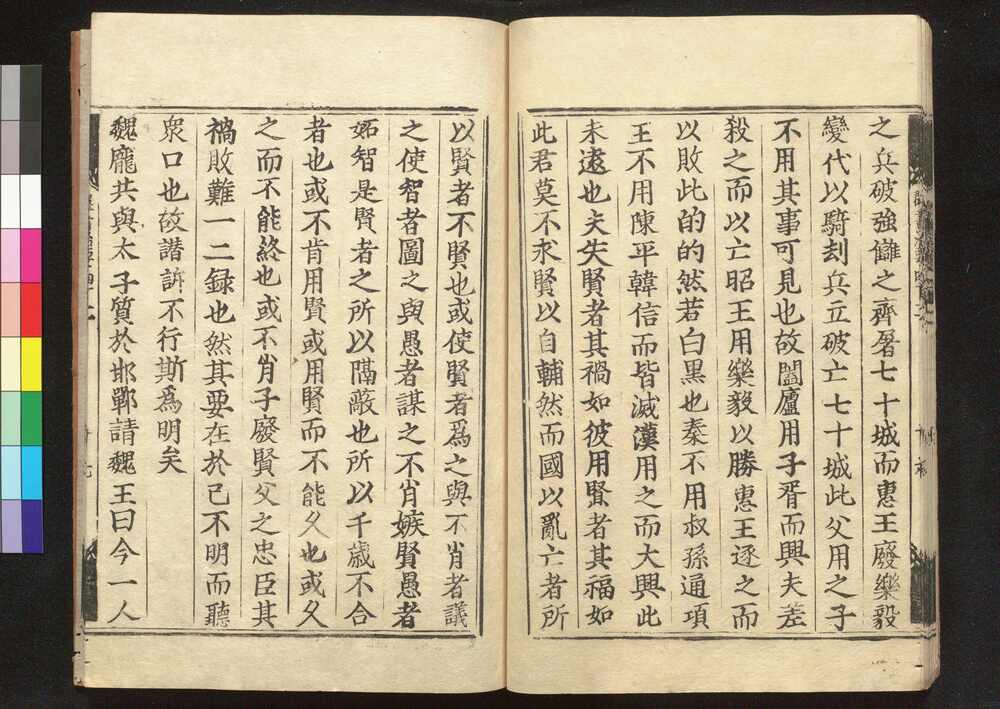 之兵破強讎之齊屠七十城而惠王廢樂毅
變代以騎刼兵立破亡七十城此父用之子
不用其事可見也故闔廬用子胥而興夫差
殺之而以亡昭王用樂毅以勝惠王逐之而
以敗此的的然若白黒也秦不用叔孫通項
王不用陳平韓信而皆滅漢用之而大興此
未逺也夫失賢者其禍如彼用賢者其福如
此君莫不求賢以自輔然而國以亂亡者所
以賢者不賢也或使賢者爲之與不肖者議
之使智者圖之與愚者謀之不肖嫉賢愚者
妬智是賢者之所以隔蔽也所以千歳不合
者也或不肯用賢或用賢而不能久也或久
之而不能終也或不肖子廢賢父之忠臣其
禍敗難一二録也然其要在於己不明而聽
衆口也故譖訴不行斯爲明矣
魏龐共與太子質於邯鄲請魏王曰今一人